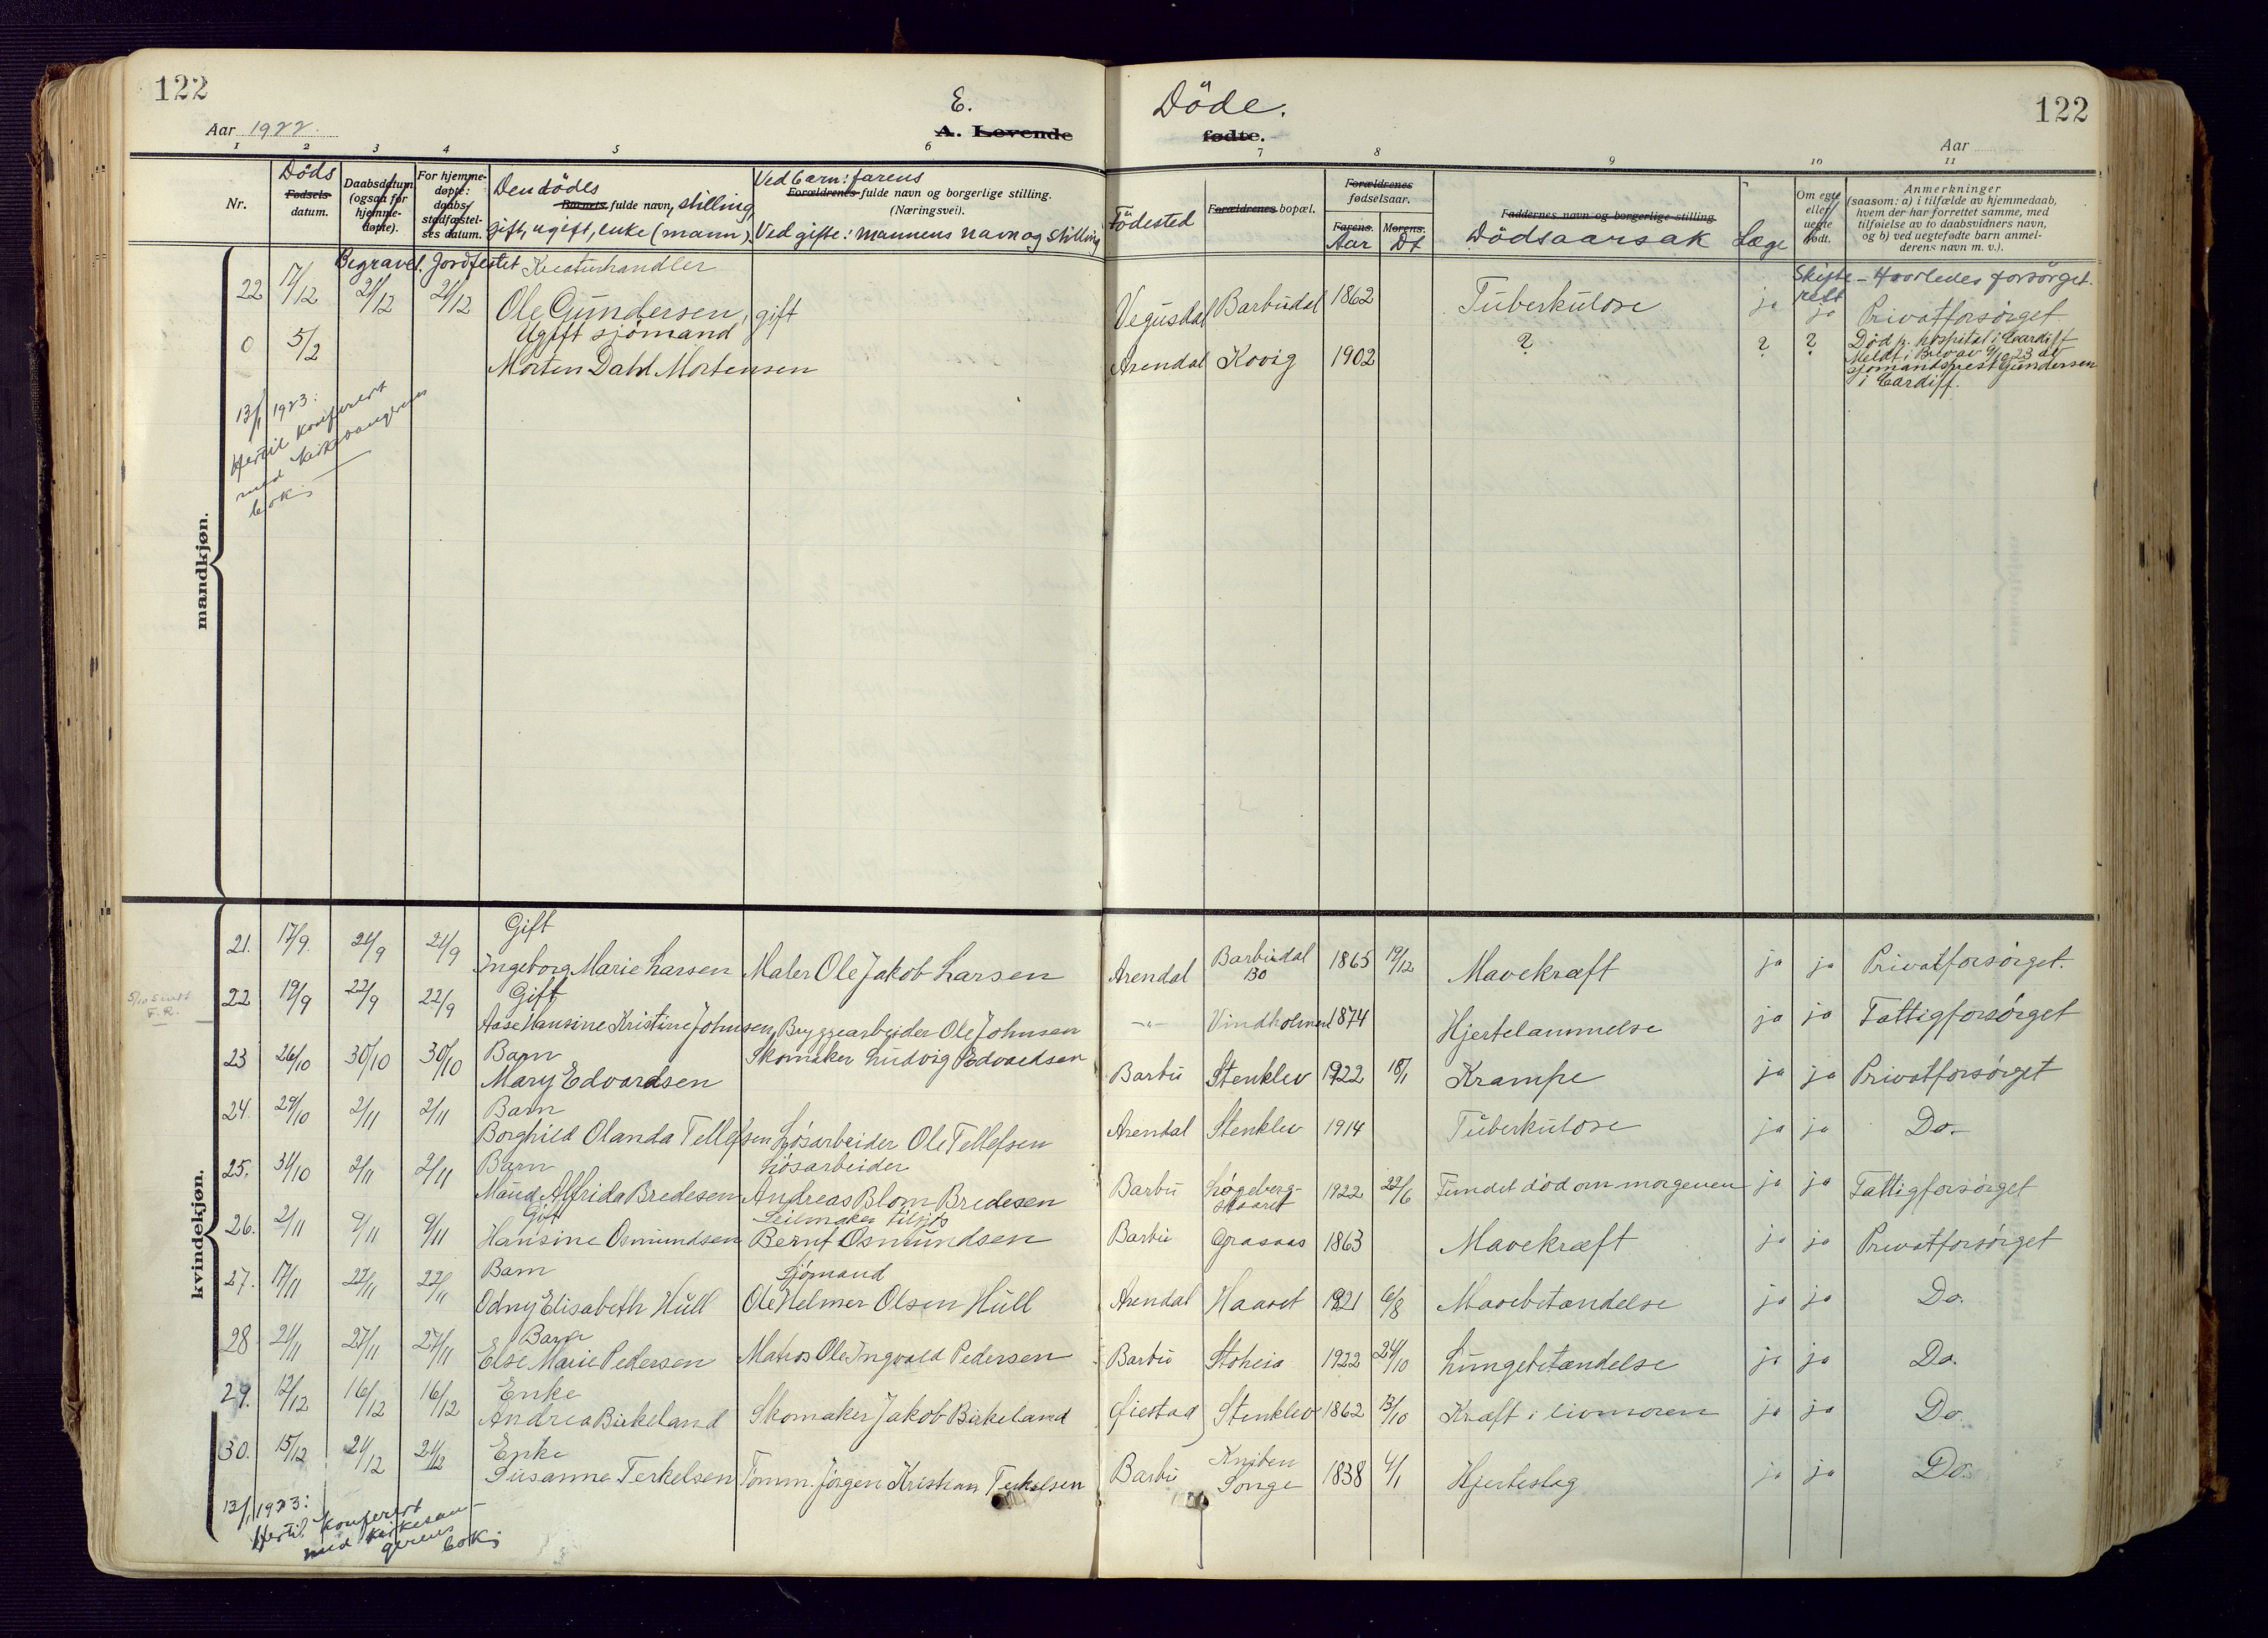 122
Aar 1922.
E. Döde.
A. Levende fødte.
122
Aar
1 2 3 4 5 6 7 8 9 10 11
Nr.
Döds
Fødsels-
datum.
Daabsdatum
(ogsaa for
hjemme-
døpte).
For hjemme-
døpte:
daabs/
stadfæstel-
ses datum.
Den dödes
Barnets fulde navn, stilling,
gift, ugift, enke (mann).
Ved barn: farens
Forældrenes fulde navn og borgerlige stilling.
(Næringsvei).
Ved gifte: mannens navn og stilling
Födested
Forældrenes bopæl.
Forældrenes
fødselsaar.
Farens. Morens.
Aar Dt
Faddernes navn og borgerlige stilling
Dödsaarsak
Læge
Om egte
eller
uegte
født.
Anmerkninger
(saasom: a) i tilfælde av hjemmedaab,
hvem der har forrettet samme, med
tilføielse av to daabsvidners navn,
og b) ved uegtefødte barn anmel-
derens navn m. v.).
Begravet. Jordfestet
Skifte - Hvorledes forsørget.
rett
mandkjøn.
Kreaturhandler
22 17/12 21/12 21/12 Ole Gundersen, gift Vegusdal Barbudal 1862 Tuberkulose ja ja Privatforsørget
Ugift sjømand
0 5/2 Morten Dahl Mortensen Arendal Kovig 1902 ? ? ? Død p. hospital i Cardiff
Meldt i Brev av 9/10 23 av
sjømandsprest Gundersen
i Cardiff.
13/1 1923:
Hertil konferert
med kirkesangerens
bok:
kvindekjøn.
Gift
21. 17/9. 21/9 21/9 Ingeborg Marie Larsen Maler Ole Jakob Larsen Arendal Barbudal 1865 19/12 Mavekræft ja ja Privatforsørget.
130
Gift
22 19/9 22/9 22/9 Aase Hansine Kristine Johnsen Bryggearbeider Ole Johnsen -"- Vindholmen 1874 Hjertelammelse ja ja Fattigforsørget
Barn Skomaker Ludvig Edvardsen
23 26/10 30/10 30/10 Mary Edvardsen Barbu Stenklev 1922 18/1 Krampe ja ja Privatforsørget
Barn
24. 29/10 2/11 2/11 Borghild Olanda Tellefsen Løsarbeider Ole Tellefsen Arendal Stenklev 1914 Tuberkulose ja ja Do.
Barn Løsarbeider
25. 31/10 2/11 2/11 Maud Alfrida Bredesen Andreas Blom Bredesen Barbu Løgeberg- 1922 22/6 Fundet død om morgenen ja ja Fattigforsørget
skaaret
Gift Seilmaker tilsjøs
26. 2/11 9/11 9/11 Hansine Osmundsen Bernt Osmundsen Barbu Grasaas 1863 Mavekræft ja ja Privatforsørget
Barn Sjømand
27. 17/11 22/11 22/11 Odny Elisabeth Hull Ole Helmer Olsen Hull Arendal Haavet 1921 6/8 Mavebetændelse ja ja Do.
Barn
28 21/11 27/11 27/11 Else Marie Pedersen Matros Ole Ingvald Pedersen Barbu Stoheia 1922 24/10 Lungebetændelse ja ja Do.
Enke
29. 12/12 16/12 16/12 Andrea Birkeland Skomaker Jakob Birkeland Øiestad Stenklev 1862 13/10 Kræft i livmoren ja ja Do.
Enke Kniben
30. 15/12 21/12 21/12 Susanne Terkelsen Tømm. Jørgen Kristian Terkelsen Barbu Songe 1838 4/1 Hjerteslag ja ja Do.
13/1 1923:
Hertil konferert
med kirkesan-
gerens
bok: